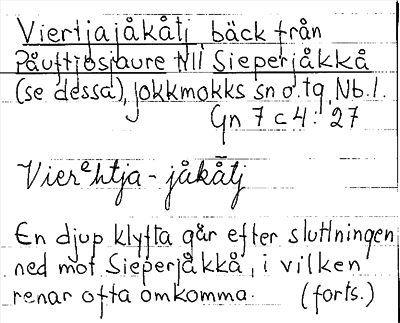 Viertjajåkåtj, bäck från
Påuftjosjaure till Sieperjåkkå
(se dessa), Jokkmokks sn o. tg, Nb.l.
Gn 7 c 4: 27
Vierᵉhtja - jåkå̄tj
En djup klyfta går efter sluttningen
ned mot Sieperjåkkå, i vilken
renar ofta omkomma. (forts.)